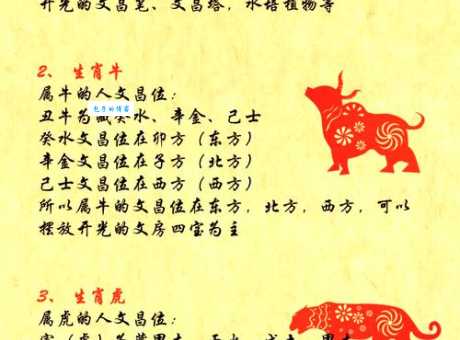 开光的文昌笔、文昌塔，水培植物等
2、 生肖牛
属牛的人文昌位：
丑牛为藏癸水、辛金、己士
包子的博客
癸水文昌位在卯方（东方）
辛金文昌位在子方（北方）
己士文昌位在西方（西方）
所以属牛的文昌位在东方，北方，西方，可以
摆放开光的文房四宝为主
3、 生肖虎
属虎的人文昌位：